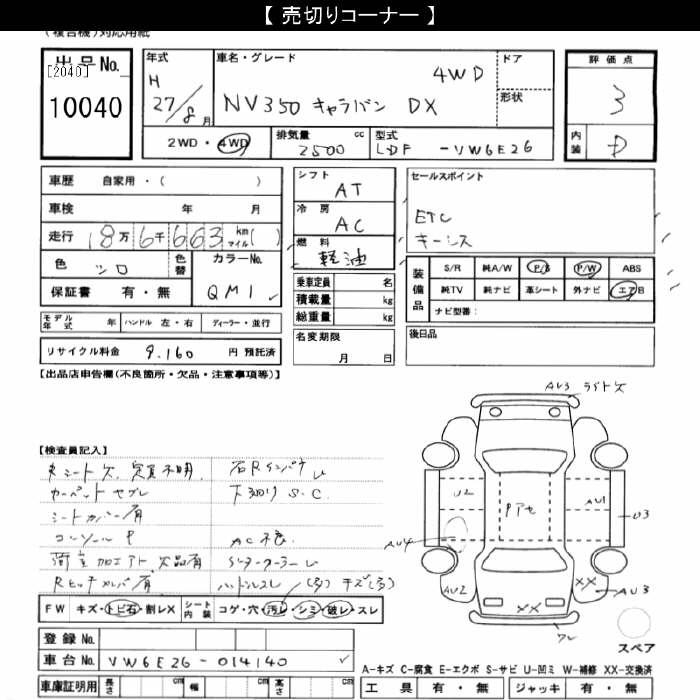 【 売切りコーナー 】
(複合機)対応用紙
出品No. [2040] 10040
年式 H 27/8月
車名・グレード 4WD NV350 キャラバン DX
ドア
形状
評価点 3
内装 D
2WD・4WD
排気量 cc 2500
型式 LDF - VW6E26
車歴 自家用・( )
車検 年 月
走行 18万6千663 km マイル( )
色 シロ 色替 カラーNo. QM1
保証書 有・無
シフト AT
冷房 AC
燃料 軽油
乗車定員 名
積載量 kg
総重量 kg
セールスポイント
ETC
キーレス
装備品 S/R 純A/W P/S P/W ABS
純TV 純ナビ 革シート 外ナビ エアB
ナビ型番:
モデル年式 年 ハンドル 左・右 ディーラー・並行
リサイクル料金 9,160 円 預託済
名変期限 月 日
後日品
【出品店申告欄(不良箇所・欠品・注意事項等)】
AU3 ライト欠
【検査員記入】
シート欠 定員不明
下廻り S.C.
シートカバー有
AC不良
FW キズ・トビ石・割レX シート内装 コゲ・穴・汚レ・シミ・破レ・スレ
U2
AU1
U3
AU4
AU2
XX
AU3
XX
スペア
登録No.
車台No. VW6E26-014140
A-キズ C-腐食 E-エクボ S-サビ U-凹ミ W-補修 XX-交換済
車庫証明用 長さ cm 幅 cm 高さ cm
工具 有・無 ジャッキ 有・無